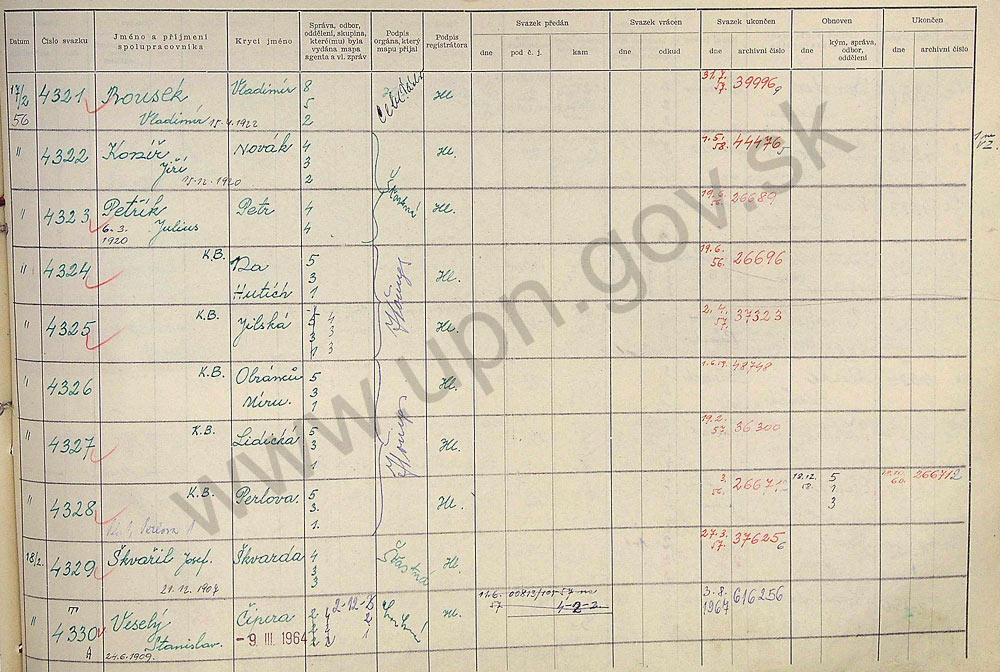 Datum
Číslo svazku
Jméno a příjmení spolupracovníka
Krycí jméno
Správa, odbor, oddělení, skupina, které(mu) byla vydána mapa agenta a vl. zpráv
Podpis orgána, který mapu přijal
Podpis registrátora
Svazek předán
dne
pod č. j.
kam
Svazek vrácen
dne
odkud
Svazek ukončen
dne
archivní číslo
Obnoven
dne
kým, správa, odbor, oddělení
Ukončen
dne
archivní číslo
17/2 56 4321 Rousek Vladimír 8 Hl. 39996
Vladimír 15.4.1922 5
2
" 4322 Koníř Novák 4 Hl. 1.5. 58. 44476
Jiří 3
15.12.1920 2
" 4323 Petřík Petr 4 Šťastná Hl. 19.6. 26689
6.3. 1920 Julius 4
" 4324 K.B. Na 5 Hl. 19.6. 56. 26696
Hutích 3
1
" 4325 K.B. Jilská 5 4 Hl. 2.4. 57. 37323
3 3
1 3
" 4326 K.B. Obránců 5 Hl. 48748
Míru. 3
1
" 4327 K.B. Lidická 5 Hl. 19.2. 57. 36300
3
1
" 4328 K.B. Perlová. 5 Hl. 26671 18.12. 5 60. 266712
3. 1
1. 3
18/2. 4329 Škvařil Josef. Škvarda 4 Šťastná Hl. 27.3. 57. 37625
21.12.1907 3
3
" T 4330 Veselý Čipera 2-12-5 Hl. 4-2-2 3.8. 1967 616256
A Stanislav. - 9 III 1964
24.6.1909.
www.upn.gov.sk